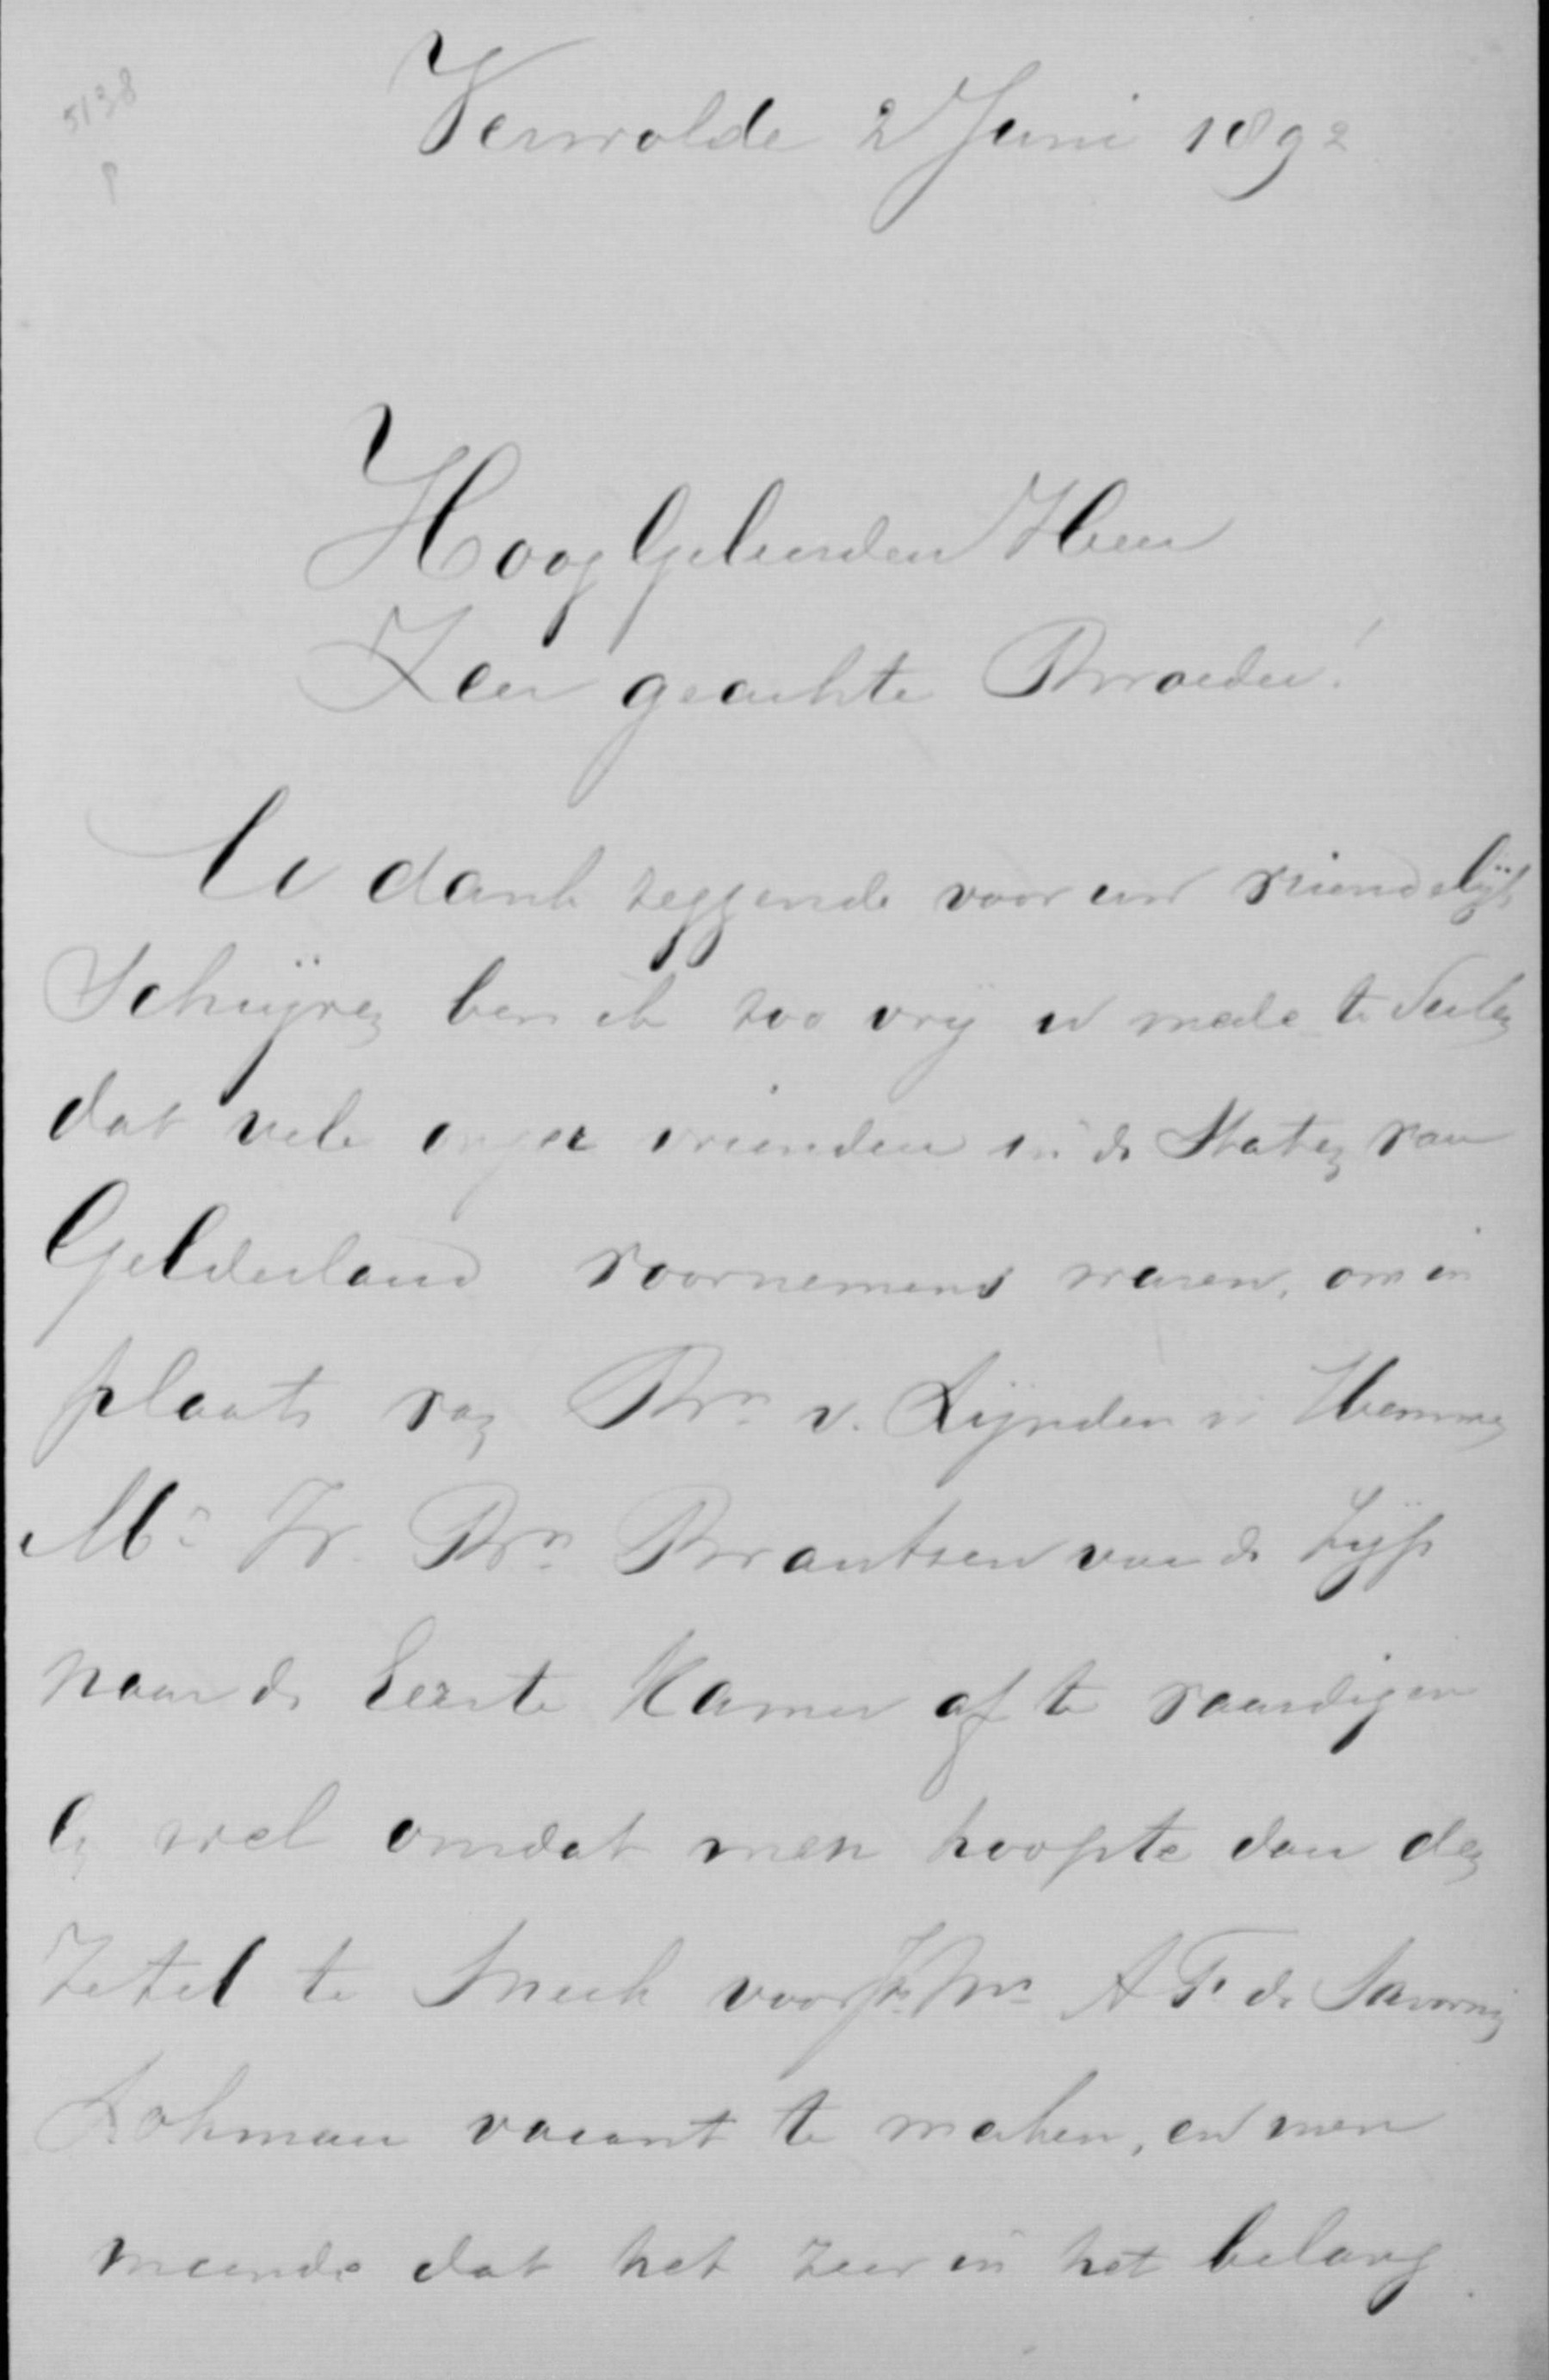 5138
P
Verwolde 2 Juni 1892
HoogGeleerden Heer
Zeer geachte Broeder!
U dank zeggende voor uw vriendelijk
Schrijven ben ik zoo vrij u mede te deelen
dat vele onzer vrienden in de Staten van
Gelderland voornemens waren, om in
plaats van Bn v. Lijnden v Hemmen
Mr Jr. Bn Brantsen van de Zijp
naar de Eerste Kamer af te vaardigen
En wel omdat men hoopte dan den
Zetel te Sneek voor Jhr. Mr. A F. de Savornin
Lohman vacant te maken, en men
meende dat het zeer in het belang